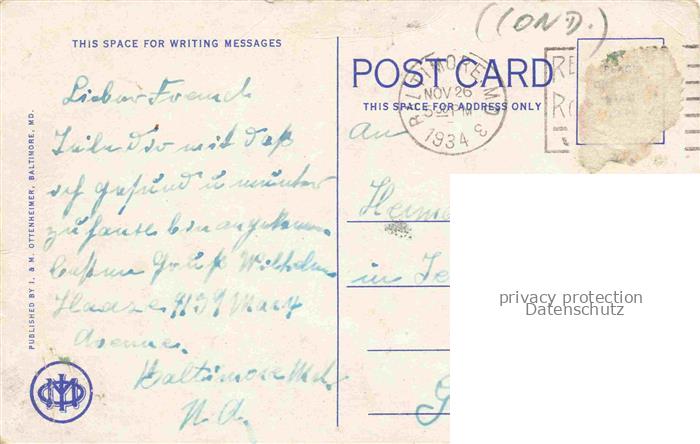 ((OND.)
THIS SPACE FOR WRITING MESSAGES
POST CARD
THIS SPACE FOR ADDRESS ONLY
BALTIMORE, MD.
NOV 26
PM
1934
PUBLISHED BY I. & M. OTTENHEIMER, BALTIMORE, MD.
Lieber Freund
Teile dir mit daß
ich gesund u munter
zu hause bin angekommen
besten Gruß Wilhelm
Haase 4139 Mary
Avenue.
Baltimore Md.
N.A.
An
in
privacy protection
Datenschutz